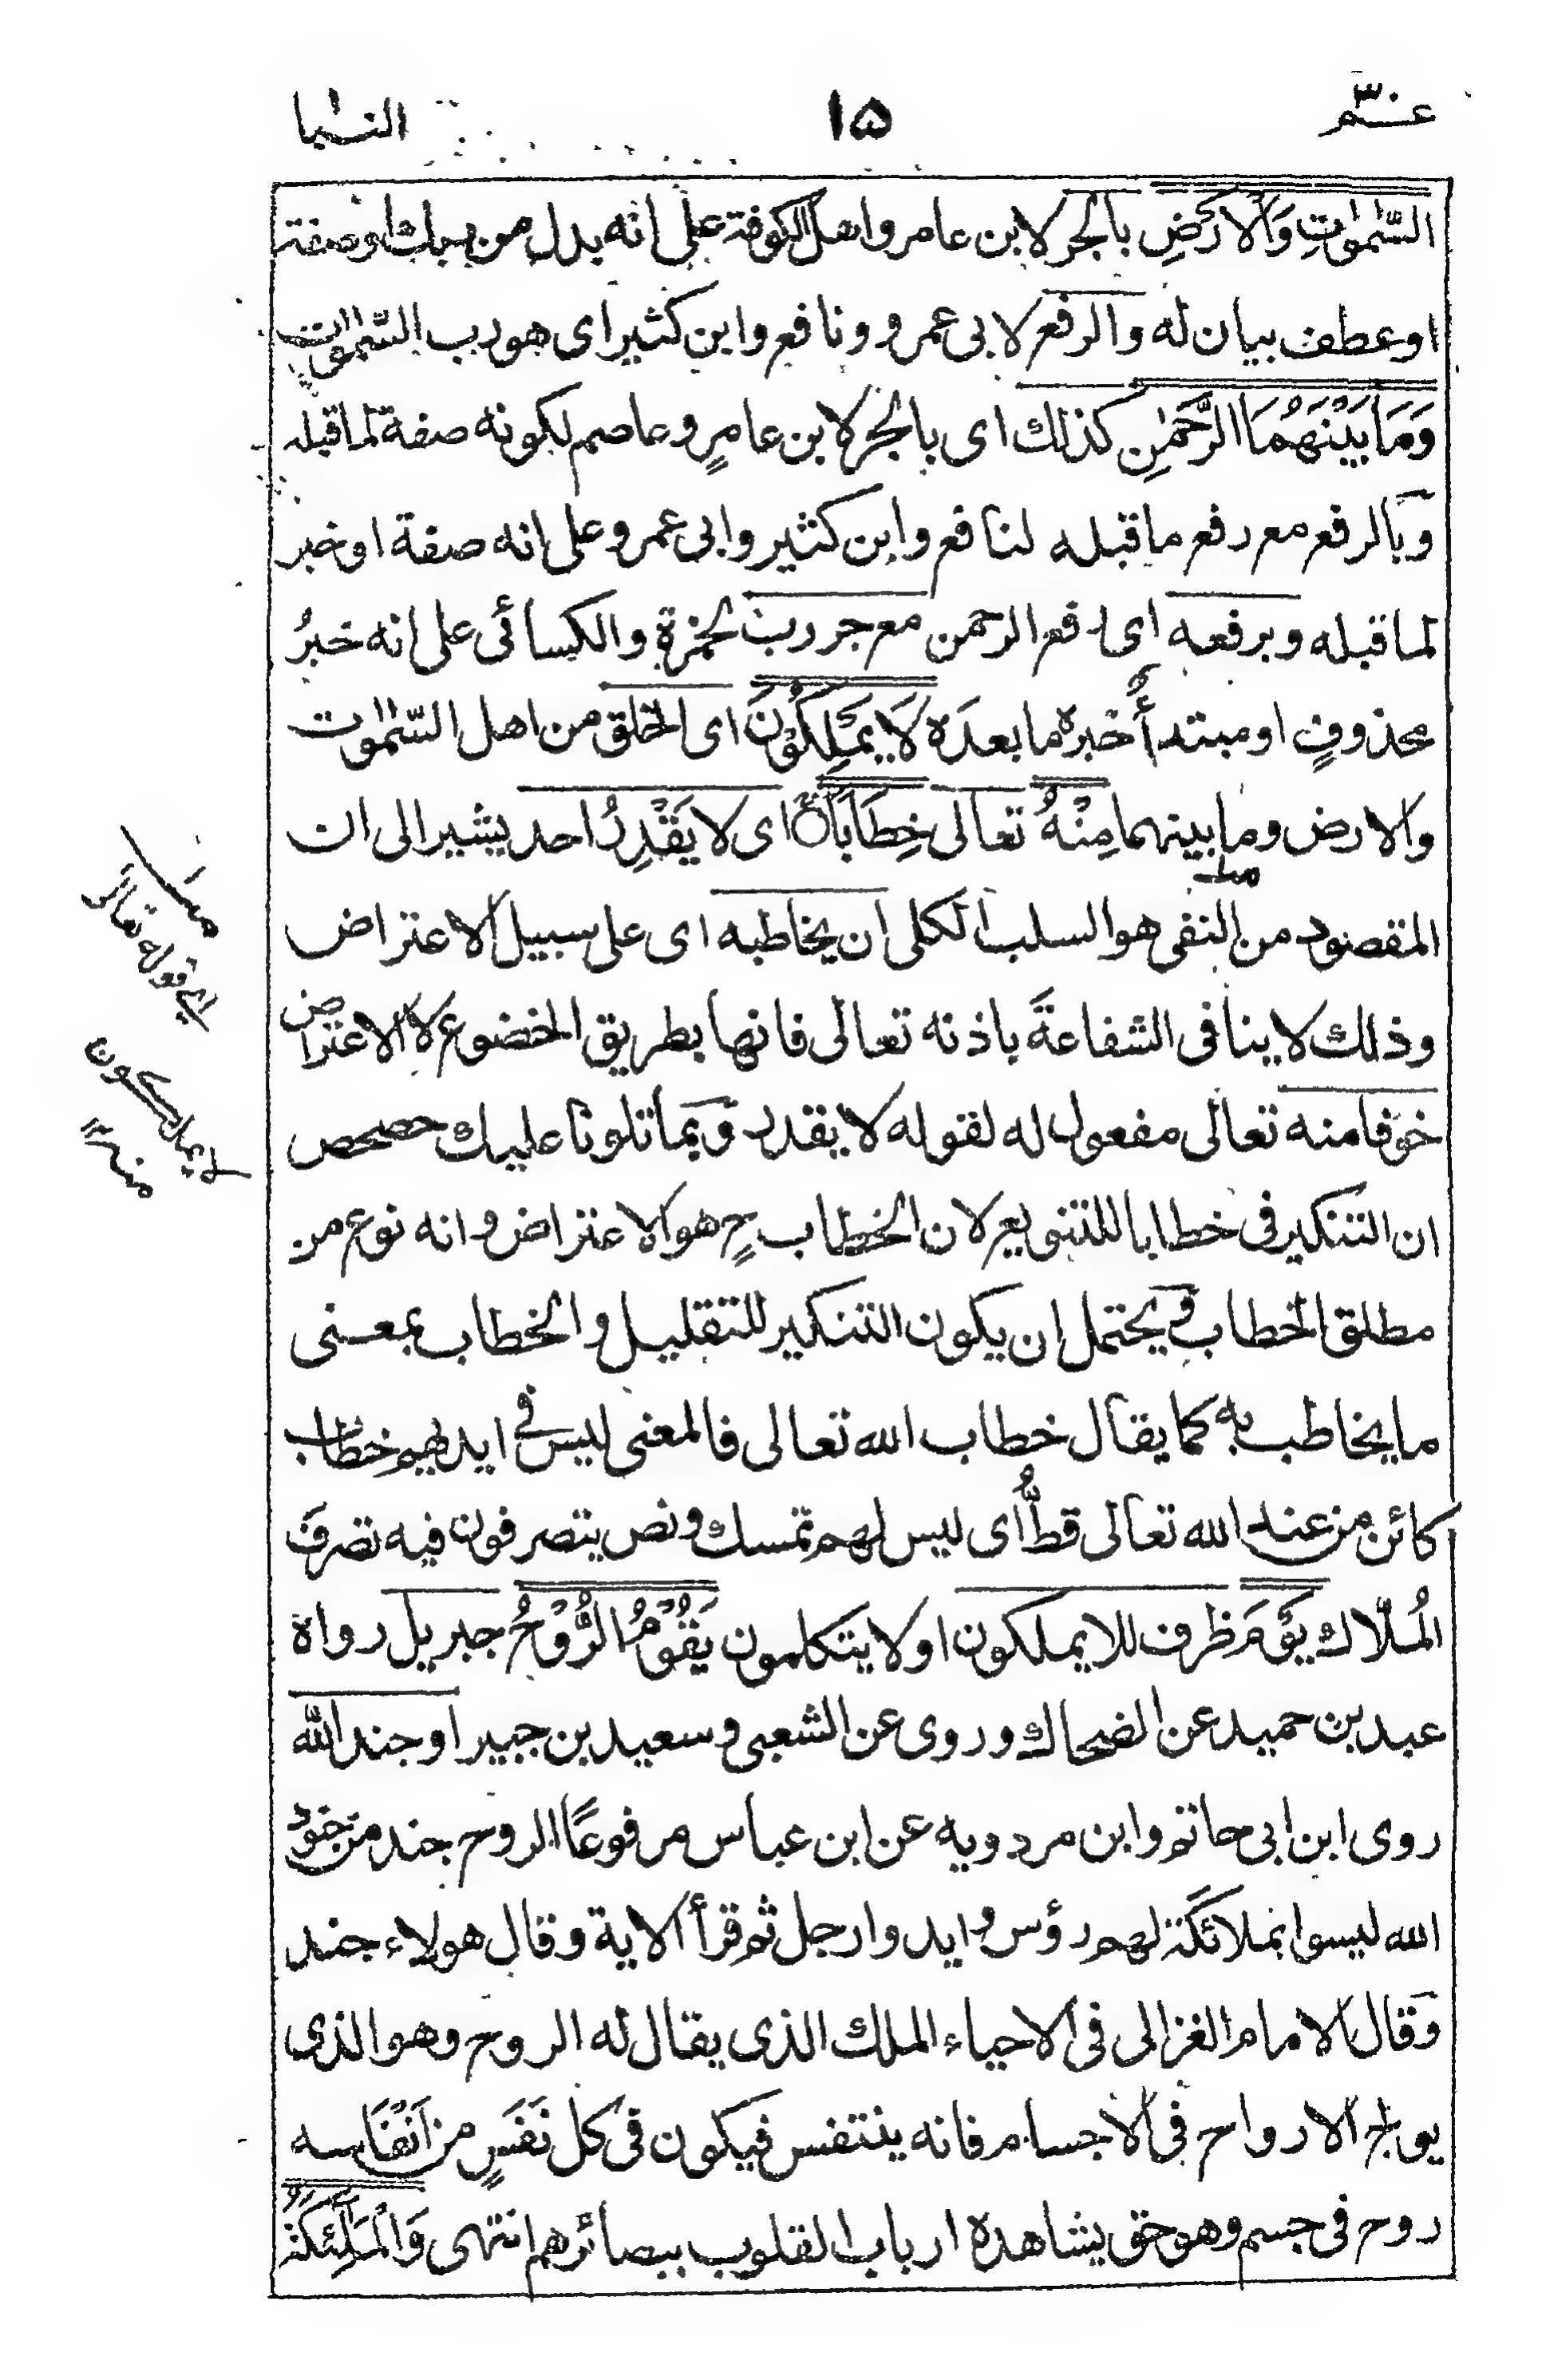 عـمّ ١٥ النـبا
السَّمٰوٰتِ وَالْاَرْضِ بالجر لابن عامر واهل الكوفة على انه بدل من ربك او صفة
او عطف بيان له والرفع لابى عمرو ونافع وابن كثير اى هو رب السّمٰوٰت
وَمَا بَيْنَهُمَا الرَّحْمٰنِ كذلك اى بالجر لابن عامرٍ وعاصم لكونه صفة لما قبله
وبالرفع مع رفع ما قبله لنافع وابن كثير وابى عمرو على انه صفة او خبر
لما قبله وبرفعه اى رفع الرحمن مع جر ربّ لحمزة والكسائى على انه خبرُ
محذوفٍ او مبتدأُ خبره ما بعدَه لَا يَمْلِكُوْنَ اى الخلق من اهل السّمٰوٰت
والارض وما بينهما مِنْهُ تعالى خِطَابًا اى لا يَقْدِرُ احد يشير الى ان
المقصود من النفى هو السلب الكلى ان يخاطبه اى على سبيل الاعتراض
وذلك لا ينافى الشفاعةَ باذنه تعالى فانها بطريق الخضوع لا الاعتراض
خوفا منه تعالى مفعول له لقوله لا يقدر وبما تلونا عليك حصحص
ان التنكير فى خطابا للتنويع لان الخطاب ح هو الاعتراض وانه نوع من
مطلق الخطاب ويحتمل ان يكون التنكير للتقليل والخطاب بمعـنى
ما يخاطب به كما يقال خطاب الله تعالى فالمعنى ليس فى ايديهم خطاب
كائن من عند الله تعالى قطُّ اى ليس لهم تمسك ونص يتصرفون فيه تصرفَ
المُلّاك يَوْمَ ظرف للا يملكون او لا يتكلمون يَقُوْمُ الرُّوْحُ جبريل رواه
عبد بن حميد عن الضحاك وروى عن الشعبى وسعيد بن جبير او جند الله
روى ابن ابى حاتم وابن مردويه عن ابن عباس مرفوعًا الروح جند من جنود
الله ليسوا بملائكة لهم رؤس وايد وارجل ثم قرأ الاية وقال هولاء جند
وقال الامام الغزالى فى الاحياء الملك الذى يقال له الروح وهو الذى
يولج الارواح فى الاجسام فانه ينتفس فيكون فى كل نَفَسٍ من اَنْفَاسه
روح فى جسم وهو حق يشاهده ارباب القلوب ببصائرهم انتهى وَالْمَلٰٓئِكَةُ
اى قوله تعالى
لا يملكون
منه